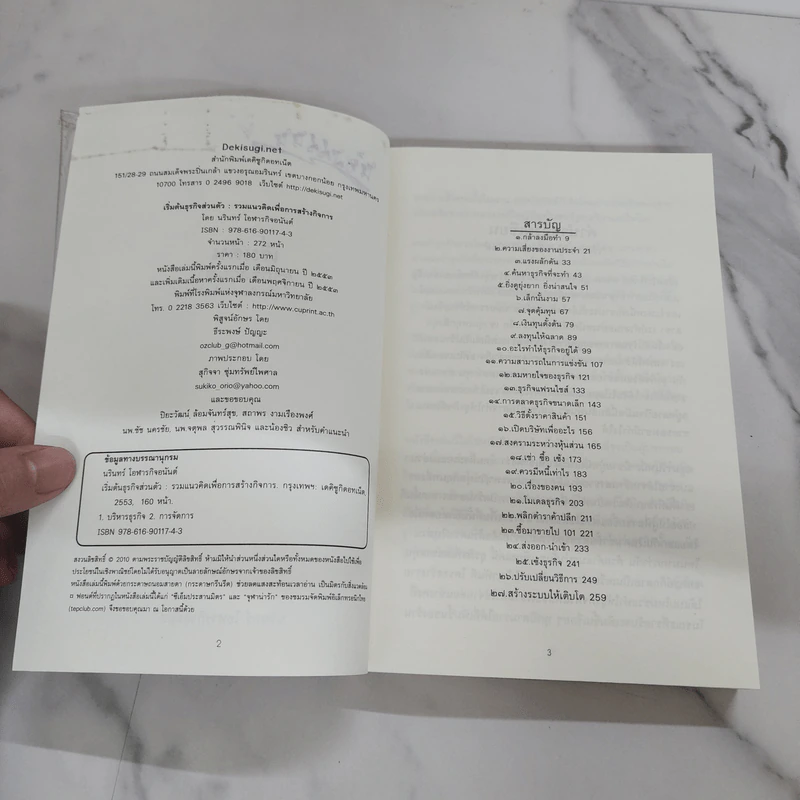 Dekisugi.net
สำนักพิมพ์เดคิซูกิดอทเน็ต
151/28-29 ถนนสมเด็จพระปิ่นเกล้า แขวงอรุณอมรินทร์ เขตบางกอกน้อย กรุงเทพมหานคร
10700 โทรสาร 0 2496 9018 เว็บไซต์ http://dekisugi.net
เริ่มต้นธุรกิจส่วนตัว : รวมแนวคิดเพื่อการสร้างกิจการ
โดย นรินทร์ โอฬารกิจอนันต์
ISBN : 978-616-90117-4-3
จำนวนหน้า : 272 หน้า
ราคา : 180 บาท
หนังสือเล่มนี้พิมพ์ครั้งแรกเมื่อ เดือนมิถุนายน ปี ๒๕๕๓
และเพิ่มเติมเนื้อหาครั้งแรกเมื่อ เดือนพฤศจิกายน ปี ๒๕๕๓
พิมพ์ที่โรงพิมพ์แห่งจุฬาลงกรณ์มหาวิทยาลัย
โทร. 0 2218 3563 เว็บไซต์ : http://www.cuprint.ac.th
พิสูจน์อักษร โดย
ธีระพงษ์ ปัญญะ
ozclub_g@hotmail.com
ภาพประกอบ โดย
สุกิจจา ชุ่มทรัพย์ไพศาล
sukiko_orio@yahoo.com
และขอขอบคุณ
ปิยะวัฒน์ ล้อมจันทร์สุข, สถาพร งามเรืองพงศ์
นพ.ชัช นครชัย, นพ.จตุพล สุวรรณพินิจ และน้องซิว สำหรับคำแนะนำ
ข้อมูลทางบรรณานุกรม
นรินทร์ โอฬารกิจอนันต์
เริ่มต้นธุรกิจส่วนตัว : รวมแนวคิดเพื่อการสร้างกิจการ. กรุงเทพฯ: เดคิซูกิดอทเน็ต,
2553. 160 หน้า.
1. บริหารธุรกิจ 2. การจัดการ
ISBN 978-616-90117-4-3
สงวนลิขสิทธิ์ © 2010 ตามพระราชบัญญัติลิขสิทธิ์ ห้ามมิให้นำส่วนหนึ่งส่วนใดหรือทั้งหมดของหนังสือไปใช้เพื่อ
ประโยชน์ในเชิงพาณิชย์โดยไม่ได้รับอนุญาตเป็นลายลักษณ์อักษรจากเจ้าของลิขสิทธิ์
หนังสือเล่มนี้พิมพ์ด้วยกระดาษถนอมสายตา (กระดาษกรีนรีด) ช่วยลดแสงสะท้อนเวลาอ่าน เป็นมิตรกับสิ่งแวดล้อม
ฟอนต์ที่ปรากฏในหนังสือเล่มนี้ได้แก่ "ซีเอ็มประสานมิตร" และ "จุฬาน่ารัก" ของชมรมจัดพิมพ์อิเล็กทรอนิกไทย
(tepclub.com) จึงขอขอบคุณมา ณ โอกาสนี้ด้วย
2
สารบัญ
๑.กล้าลงมือทำ 9
๒.ความเสี่ยงของงานประจำ 21
๓.แรงผลักดัน 33
๔.ค้นหาธุรกิจที่จะทำ 43
๕.ยิ่งดูยุ่งยาก ยิ่งน่าสนใจ 51
๖.เล็กนั้นงาม 57
๗.จุดคุ้มทุน 67
๘.เงินทุนตั้งต้น 79
๙.ลงทุนให้ฉลาด 89
๑๐.อะไรทำให้ธุรกิจอยู่ได้ 99
๑๑.ความสามารถในการแข่งขัน 107
๑๒.ลมหายใจของธุรกิจ 121
๑๓.ธุรกิจแฟรนไชส์ 133
๑๔.การตลาดธุรกิจขนาดเล็ก 143
๑๕.วิธีตั้งราคาสินค้า 151
๑๖.เปิดบริษัทเพื่ออะไร 156
๑๗.สงครามระหว่างหุ้นส่วน 165
๑๘.เช่า ซื้อ เซ้ง 173
๑๙.ควรมีหนี้เท่าไร 183
๒๐.เรื่องของคน 193
๒๑.โมเดลธุรกิจ 203
๒๒.พลิกตำราค้าปลีก 211
๒๓.ซื้อมาขายไป 101 221
๒๔.ส่งออก-นำเข้า 233
๒๕.เซ้งธุรกิจ 241
๒๖.ปรับเปลี่ยนวิธีการ 249
๒๗.สร้างระบบให้เติบโต 259
3